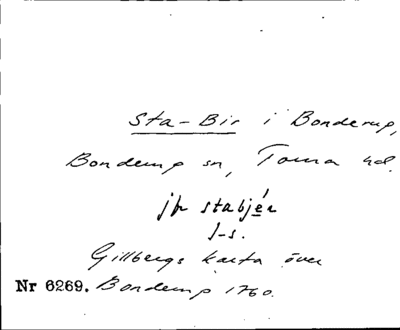 Sta-Bir i Bonderup,
Bonderup sn, Torna hd.
jfr stabjér
1-s.
Gillbergs karta över
Nr 6269. Bonderup 1760.